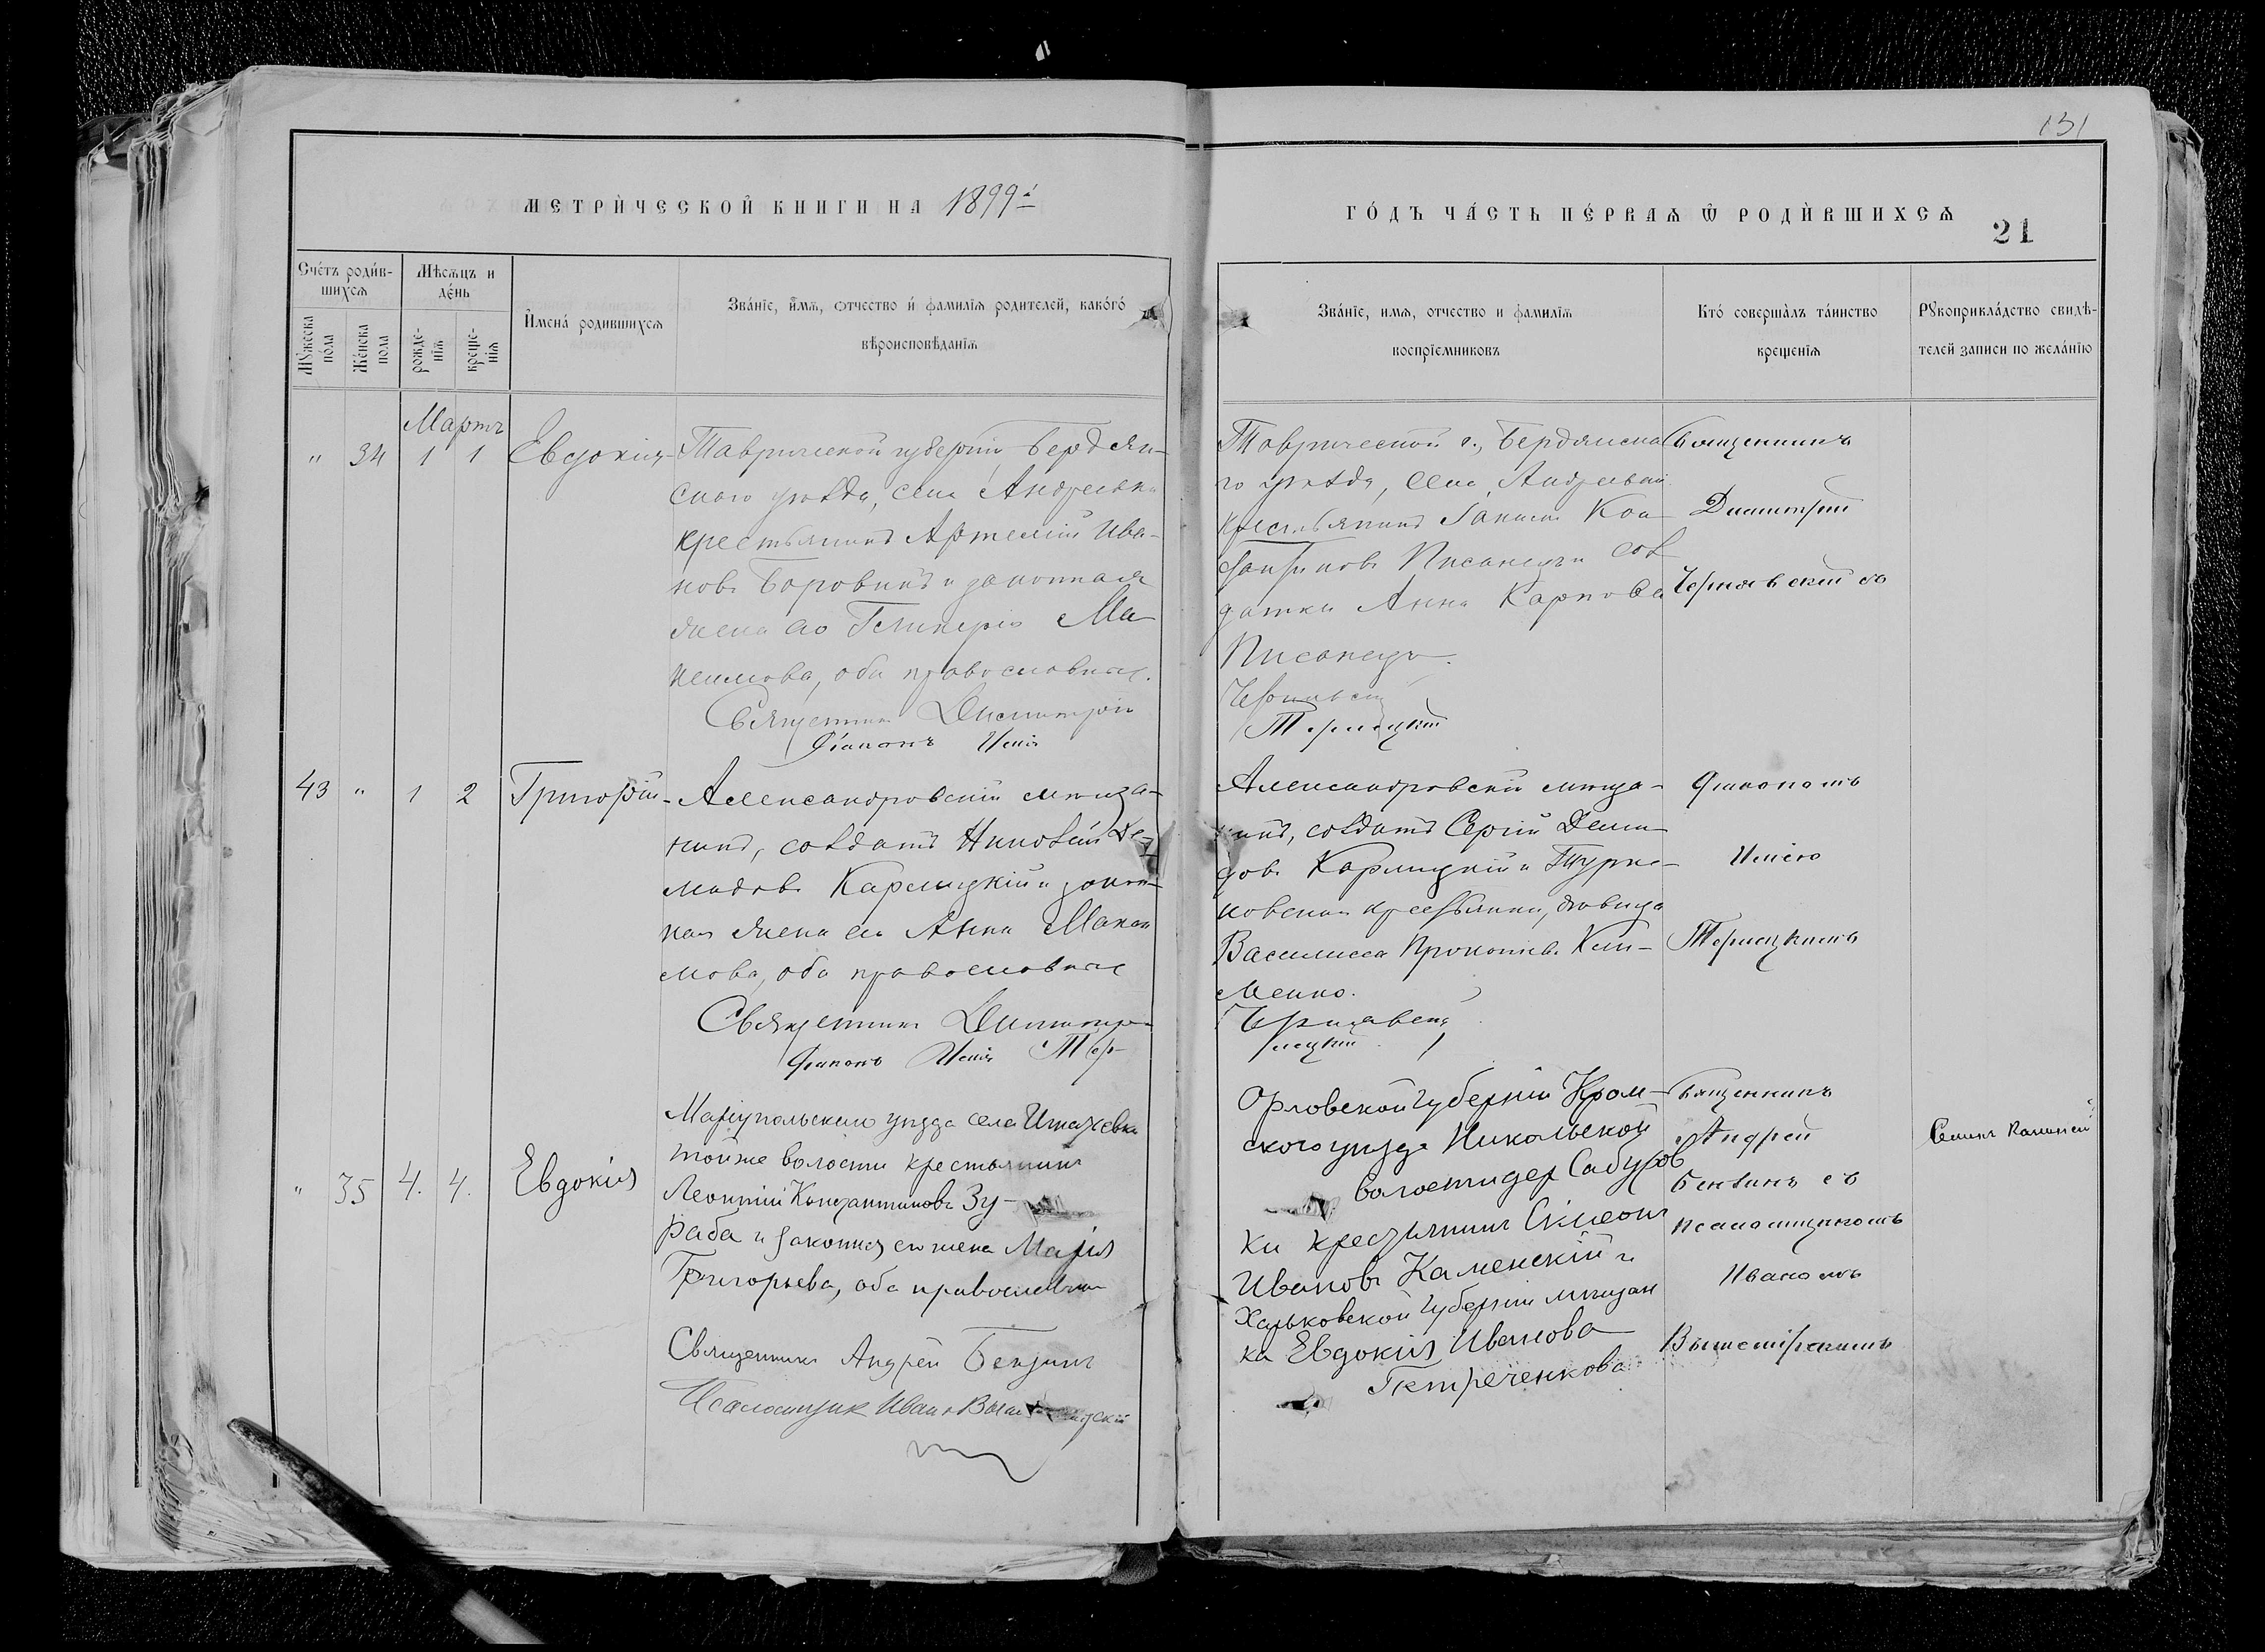 131
МЕТРИ́ЧЕСКОЙ КНИГИ НА 1899й
ГО́ДЪ ЧА́СТЬ ПЕ́РВАѦ Ѿ РОДИ́ВШИХСѦ
21
Сче́тъ роди́в-
шихсѧ
Мѣсѧцъ и
де́нь
Мꙋжеска
по́ла
Же́нска
пола
рожде-
нїѧ
креще-
нїѧ
И҆мена́ родившихсѧ
Зва́нїе, и҆мѧ, ѻтчество и҆ фамилїѧ родителей, како́го
вѣроисповѣданїѧ
Зва́нїе, имѧ, отчество и фамилїѧ
воспрїемниковъ
Кто́ соверша́лъ та́инство
крещенїѧ
Рꙋкоприкла́дство свидѣ-
телей записи по жела́нїю
Мартъ
" 34 1 1 Евдокія
Таврической губерніи, Бердян-
скаго уѣзда, села Андреевки
крестьянинъ Артемій Ива-
новъ Боровикъ и законная
жена его Гликерія Ма-
ксимова, оба православные.
Священникъ Димитрій
Діаконъ Исаія
Таврической г., Бердянска-
го уѣзда, села Андреевки
крестьянинъ
Писанецъ и сол-
датка Анна Карпова
Писанецъ.
Чернявскій
Терлецкій
Священникъ
Димитрій
Чернявскій съ
43 " 1 2 Григорій
Александровскій мѣща-
нинъ, солдатъ Николай Де-
мидовъ Кармицкій и закон-
ная жена его Анна Макси-
мова, оба православные
Священникъ Димитрій
Діаконъ Исаія Тер-
Александровскій мѣща-
нинъ, солдатъ Сергій Деми-
довъ Кармицкій и Турке-
новская крестьянка, дѣвица
Василисса Прокопіева Кли-
менко.
Чернявскій
лецкій
діакономъ
Исаіею
Терлецкимъ
" 35 4. 4. Евдокія
Маріупольскаго уѣзда села Игнатьевки
тойже волости крестьянинъ
Леонтій Константиновъ Зу-
раба и законная его жена Марія
Григорьева, оба православные
Священникъ Андрей
Псаломщикъ Иванъ
Орловской губерніи Кром-
скаго уѣзда Никольской
волости дер. Сабуров
ки крестьянинъ Симеонъ
Ивановъ Каменскій и
Харьковской губерніи мѣщан
ка Евдокія Иванова
Священникъ
Андрей
съ
псаломщикомъ
Иваномъ